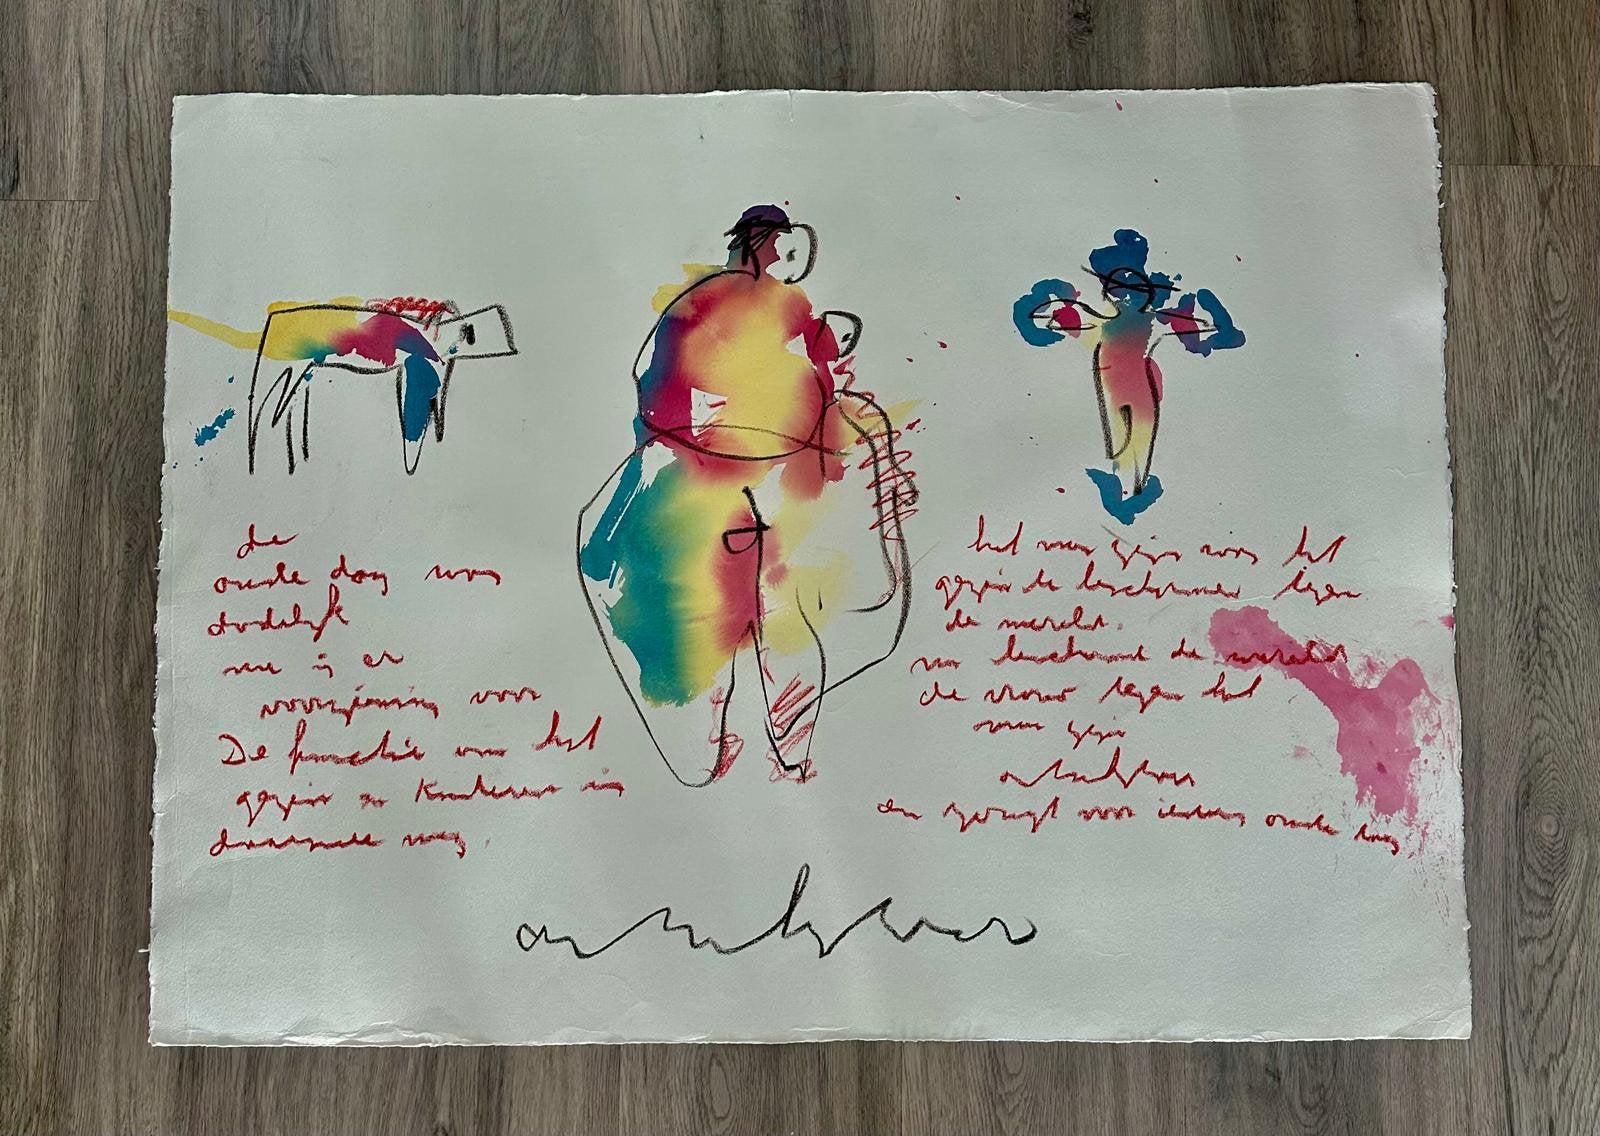 de
oude dag was
dodelijk
nu is er
voorziening voor
De functie van het
gezin en kinderen is
daarmede weg
het was zijn van het
gezin de beschermer tegen
de wereld.
nu beschermt de wereld
de vrouw tegen het
zijn
en zorgt voor ieders oude dag